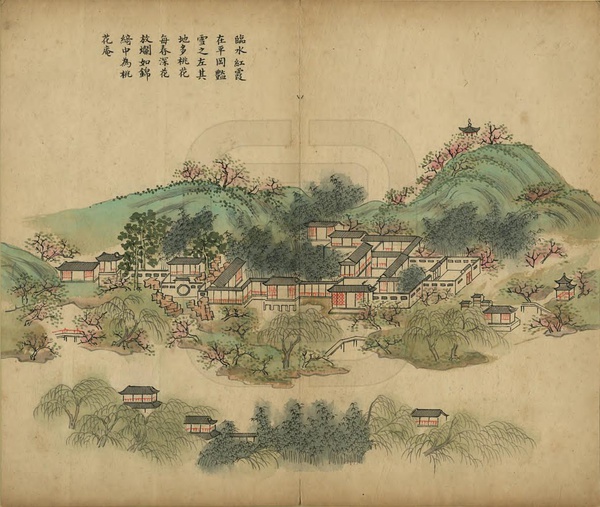 臨水紅霞
在平岡豔
雪之左其
地多桃花
每春深花
放爛如錦
綺中為桃
花庵